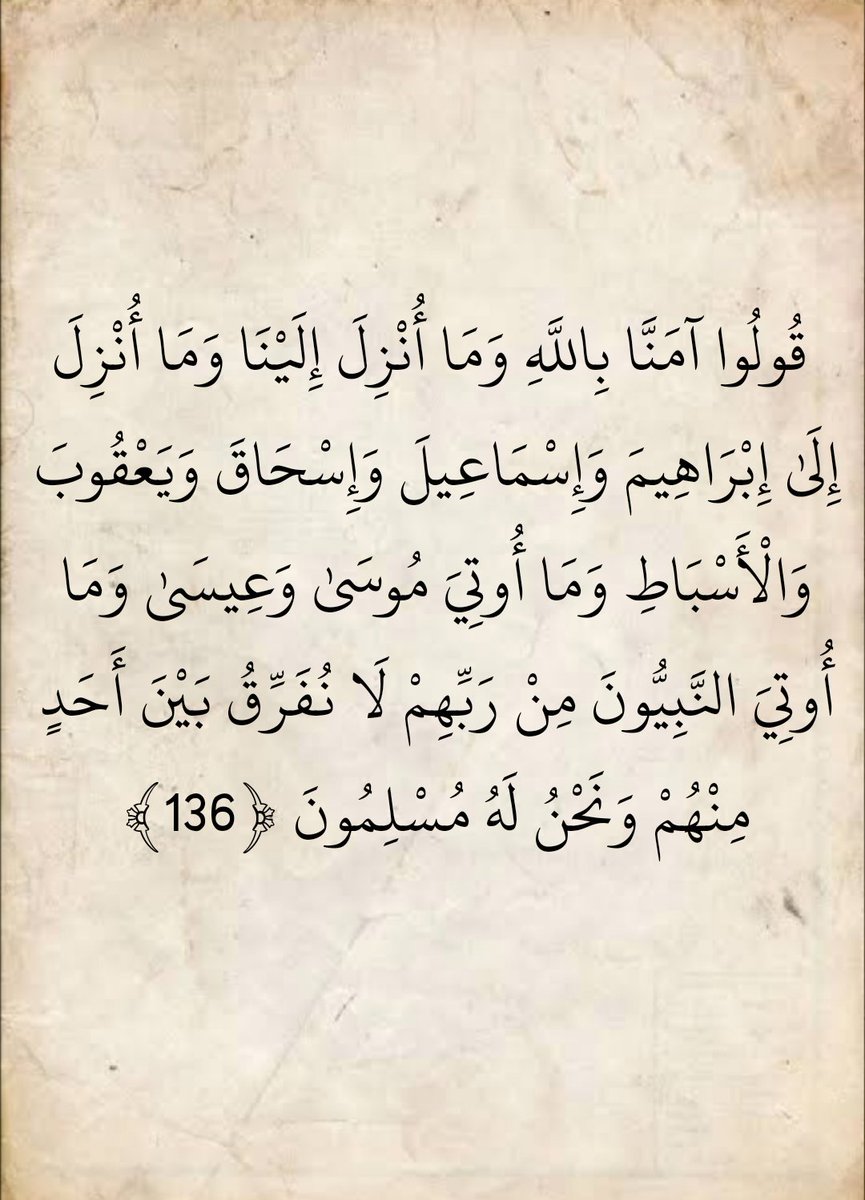 قُولُوا آمَنَّا بِاللَّهِ وَمَا أُنْزِلَ إِلَيْنَا وَمَا أُنْزِلَ
إِلَىٰ إِبْرَاهِيمَ وَإِسْمَاعِيلَ وَإِسْحَاقَ وَيَعْقُوبَ
وَالْأَسْبَاطِ وَمَا أُوتِيَ مُوسَىٰ وَعِيسَىٰ وَمَا
أُوتِيَ النَّبِيُّونَ مِنْ رَبِّهِمْ لَا نُفَرِّقُ بَيْنَ أَحَدٍ
مِنْهُمْ وَنَحْنُ لَهُ مُسْلِمُونَ ﴿136﴾